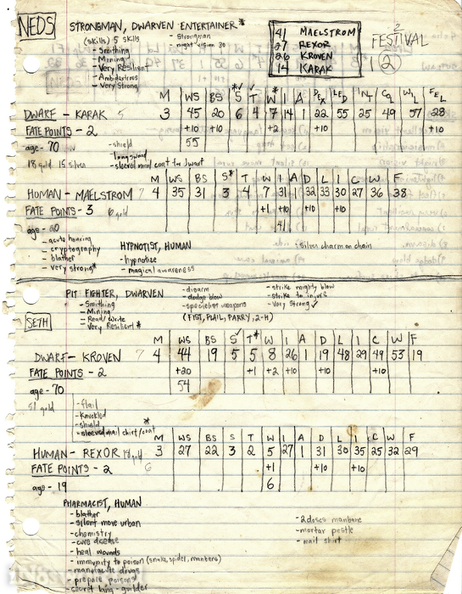 NEDS
STRONGMAN, DWARVEN ENTERTAINER*
(skills) 5 skills
- Smithing
- Mining
- Very Resilient
- Ambidextrous
- Very Strong
- Strongman
- night vision 30
41 MAELSTROM
27 REXOR
26 KROVEN
14 KARAK
FESTIVAL
2
M WS BS S T W I A DEX LED INT CL WIL FEL
DWARF - KARAK 5 3 45 20 6 4 7 14 1 22 55 25 49 57 28
FATE POINTS - 2 +10 +10 +2 +10 +10
55
age - 70
18 gold 15 silver
- shield
- longsword
- sleeved mail coat
M WS BS S* T W I A D L I C W F
HUMAN - MAELSTROM 7 4 35 31 3 4 7 31 1 32 33 30 27 36 38
FATE POINTS - 3 6 gold +1 +10 +10 +10
41
- acute hearing
- cryptography
- blather
- very strong*
HYPNOTIST, HUMAN
- hypnotise
- magical awareness
- silver charm on chain
PIT FIGHTER, DWARVEN
- Smithing
- Mining
- Read/Write
- Very Resilient*
- disarm
- dodge blow
- specialist weapons
(FIST, FLAIL, PARRY, 2-H)
- strike mighty blow
- strike to injure
- Very Strong
SETH
M WS BS S T* W I A D L I C W F
DWARF - KROVEN 7 4 44 19 5 5 8 26 1 19 48 29 49 53 19
FATE POINTS - 2 +20 +1 +2 +10 +10 +10
54
age - 70
51 gold
- flail
- knuckled
- shield
- sleeved mail shirt/coat
M WS BS S T W I A D L I C W F
HUMAN - REXOR 3 27 22 3 2 5 27 1 31 30 35 25 32 29
FATE POINTS - 2 6 +1 +10 +10
6
age - 19
PHARMACIST, HUMAN
- blather
- silent move urban
- chemistry
- cure disease
- heal wounds
- immunity to poison
- manufacture drugs
- prepare poisons
- secret lang - guilder
- 2 doses manbane
- mortar pestle
- mail shirt